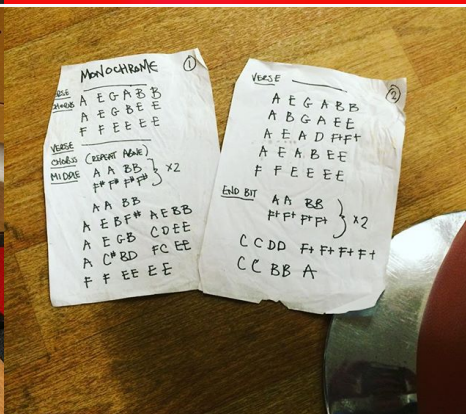 MONOCHROME ①
VERSE
CHORUS A E G A B B
A E G B E E
F F E E E E
VERSE
CHORUS (REPEAT ABOVE)
MIDDLE A A BB
F# F# F# F# } x2
A A BB
A E B F# A E B B
A E G B C D E E
A C# B D F C E E
F F E E E E
VERSE ②
A E G A B B
A B G A E E
A E A D F# F#
A E A B E E
F F E E E E
END BIT A A BB
F# F# F# F# } x2
C C D D F# F# F# F#
C C BB A